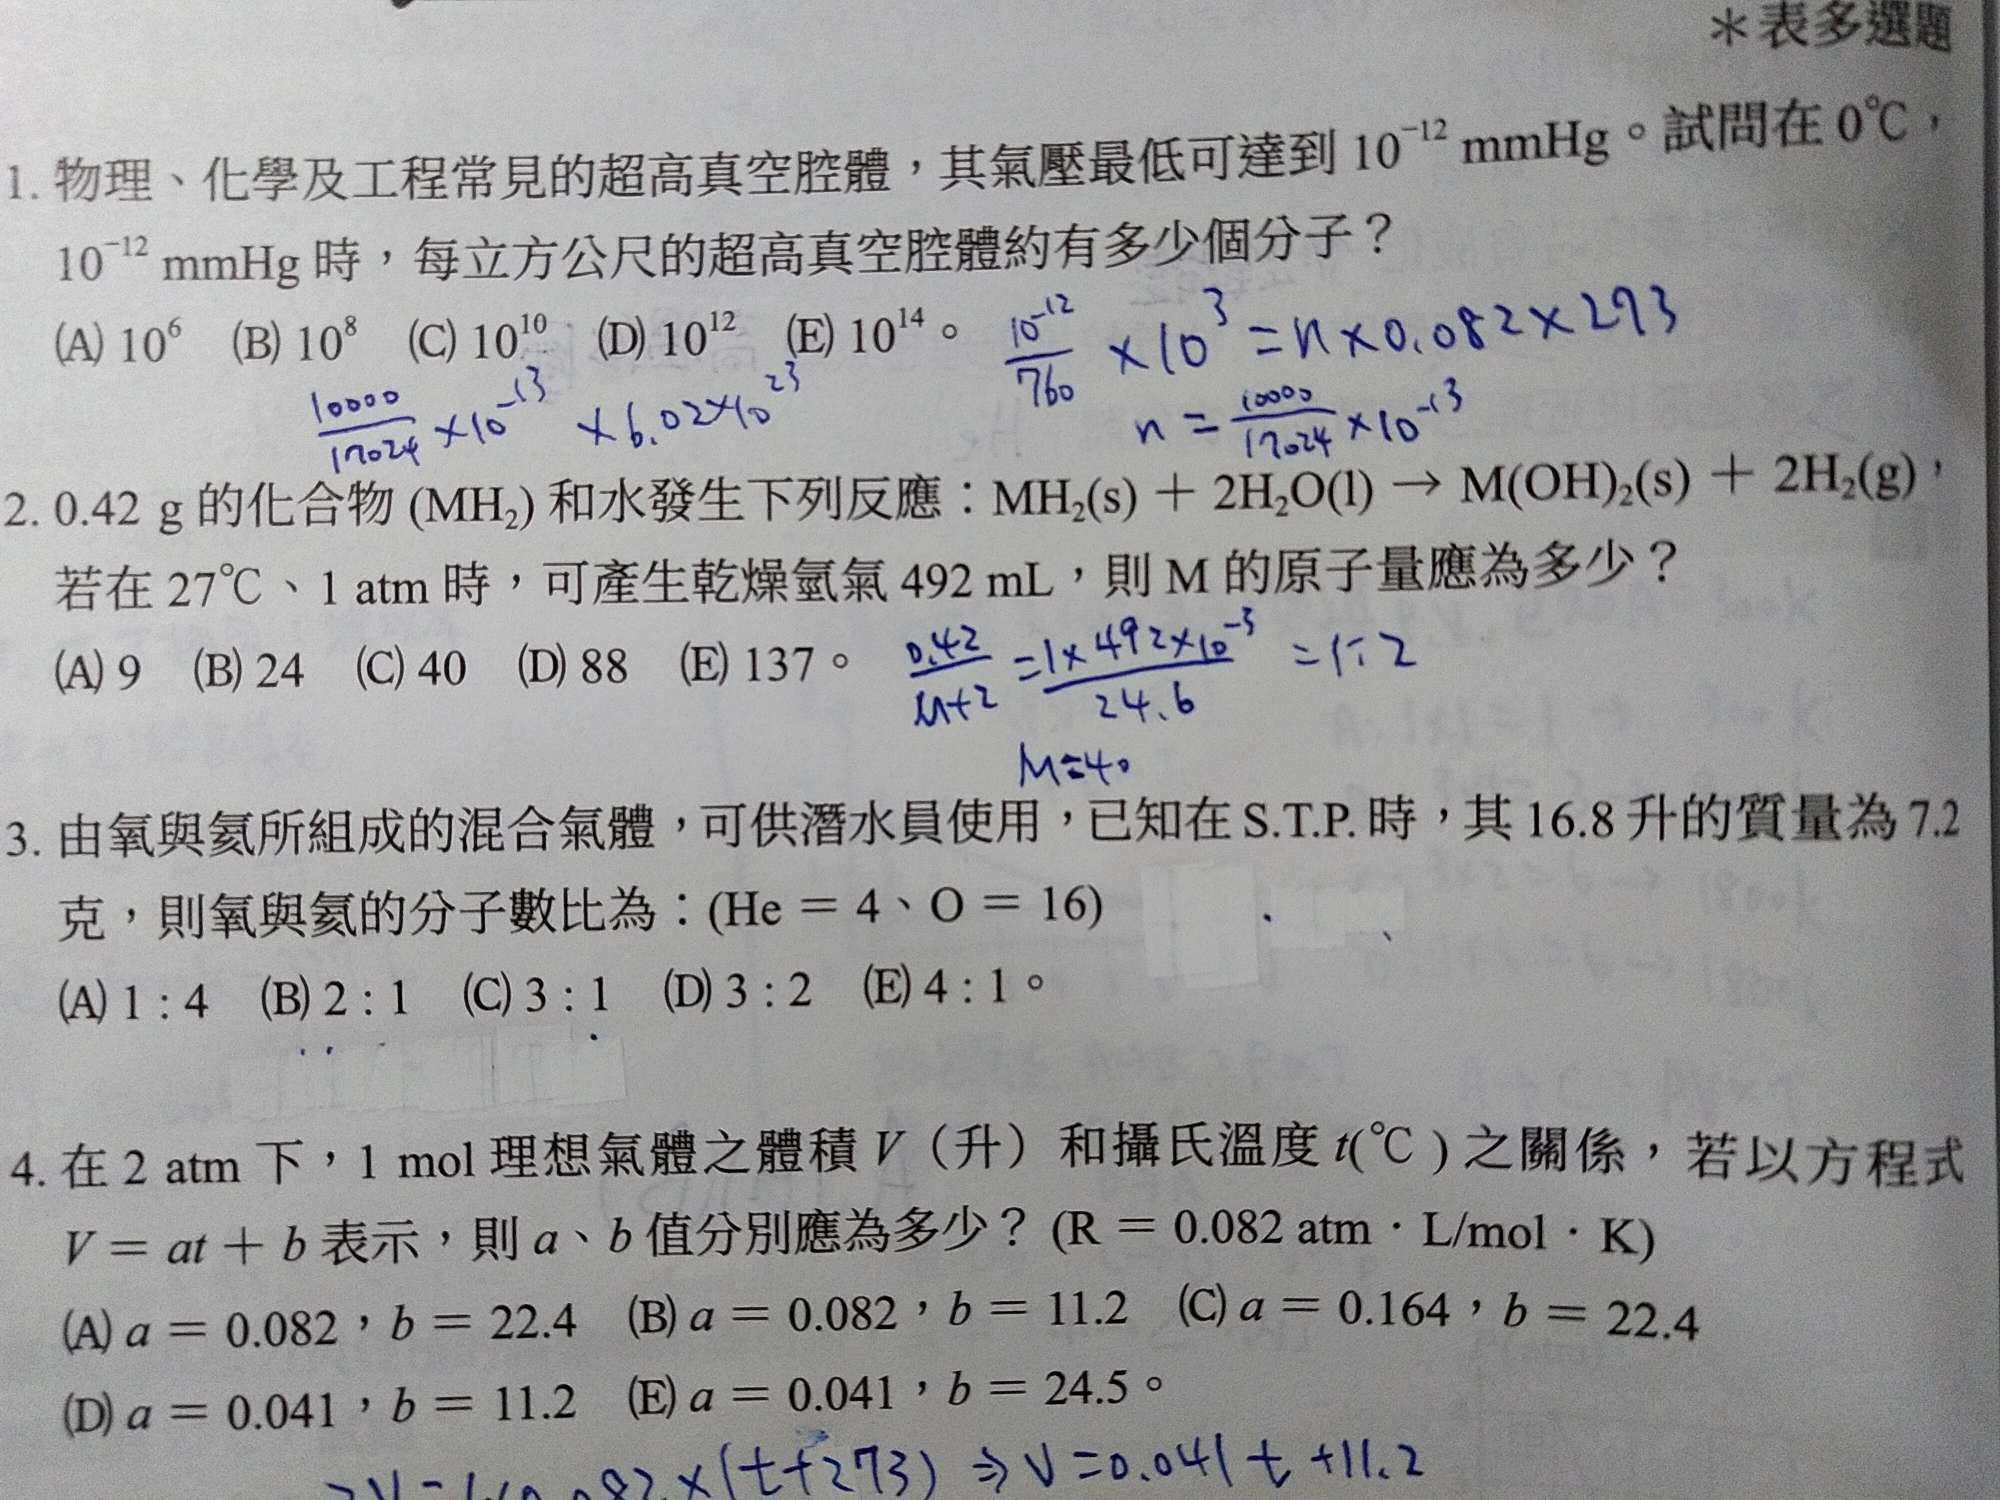 ＊表多選題
1. 物理、化學及工程常見的超高真空腔體，其氣壓最低可達到 10⁻¹² mmHg。試問在 0℃，
10⁻¹² mmHg 時，每立方公尺的超高真空腔體約有多少個分子？
(A) 10⁶ (B) 10⁸ (C) 10¹⁰ (D) 10¹² (E) 10¹⁴。
10⁻¹²/760 × 10³ = n × 0.082 × 273
n = 10000/17024 × 10⁻¹³
10000/17024 × 10⁻¹³ × 6.02 × 10²³
2. 0.42 g 的化合物 (MH₂) 和水發生下列反應：MH₂(s) ＋ 2H₂O(l) → M(OH)₂(s) ＋ 2H₂(g)，
若在 27℃、1 atm 時，可產生乾燥氫氣 492 mL，則 M 的原子量應為多少？
(A) 9 (B) 24 (C) 40 (D) 88 (E) 137。
0.42/M+2 = 1 × 492 × 10⁻³/24.6 = 1 : 2
M = 40
3. 由氧與氦所組成的混合氣體，可供潛水員使用，已知在 S.T.P. 時，其 16.8 升的質量為 7.2
克，則氧與氦的分子數比為：(He ＝ 4、O ＝ 16)
(A) 1 : 4 (B) 2 : 1 (C) 3 : 1 (D) 3 : 2 (E) 4 : 1。
4. 在 2 atm 下，1 mol 理想氣體之體積 V（升）和攝氏溫度 t(℃) 之關係，若以方程式
V ＝ at ＋ b 表示，則 a、b 值分別應為多少？ (R ＝ 0.082 atm．L/mol．K)
(A) a ＝ 0.082，b ＝ 22.4 (B) a ＝ 0.082，b ＝ 11.2 (C) a ＝ 0.164，b ＝ 22.4
(D) a ＝ 0.041，b ＝ 11.2 (E) a ＝ 0.041，b ＝ 24.5。
2V = 1×0.082×(t+273) ⇒ V = 0.041 t + 11.2